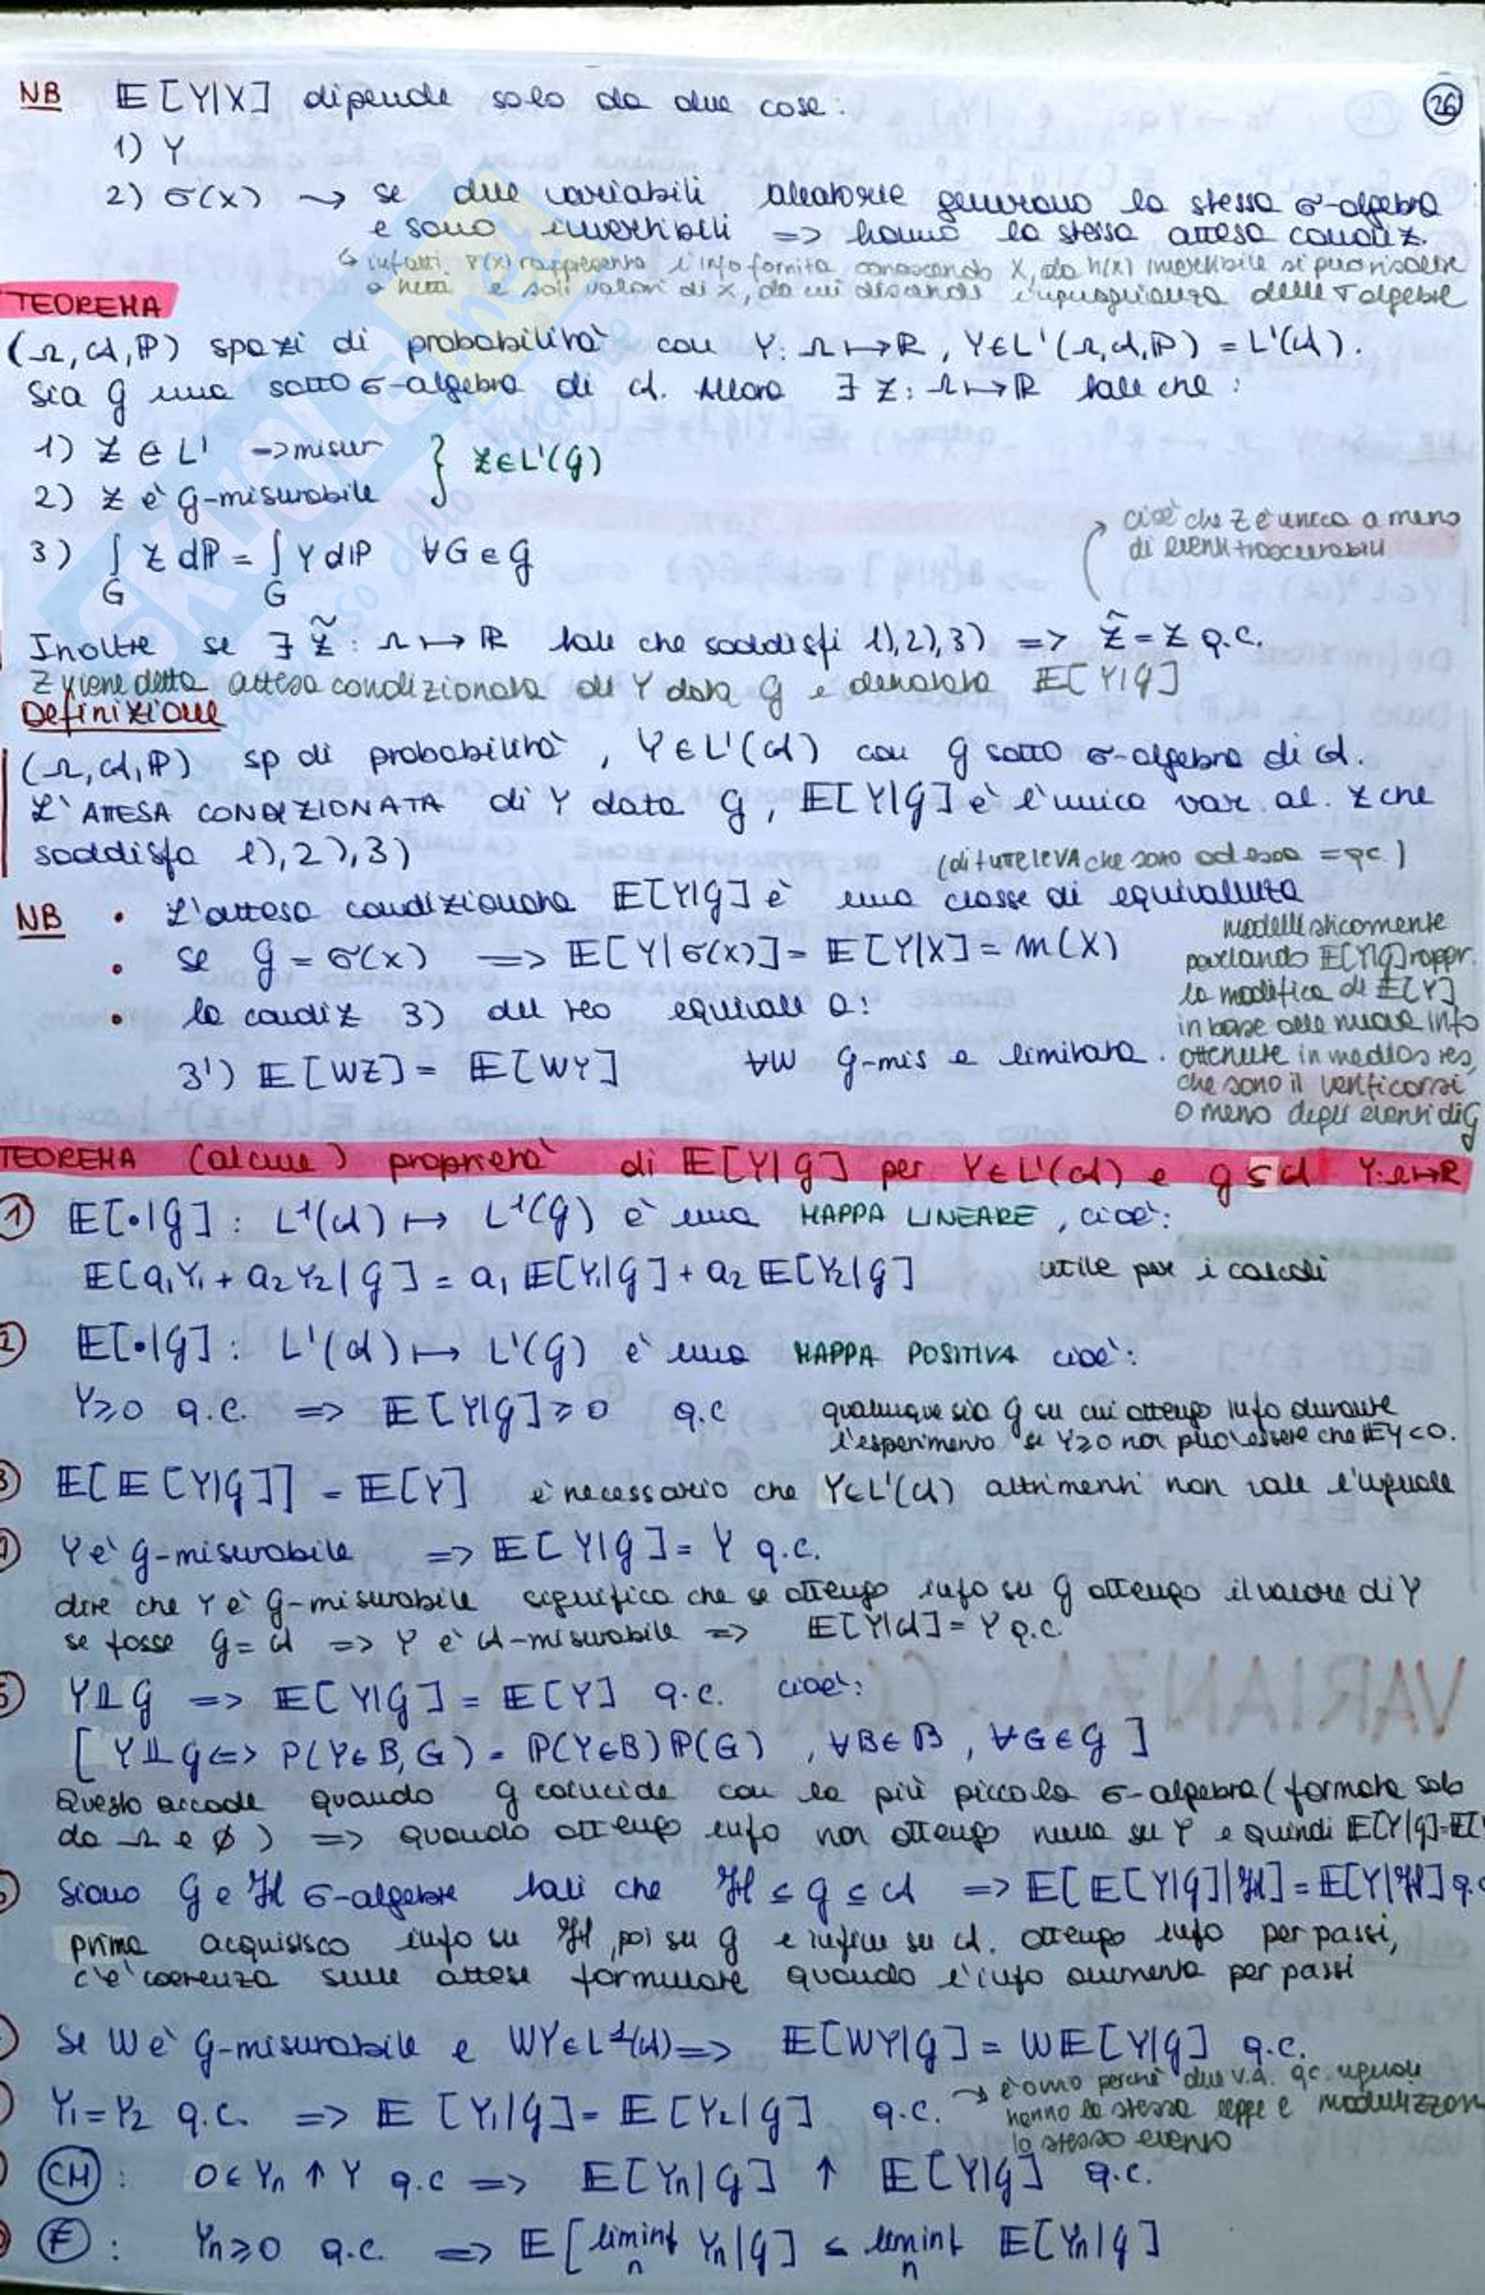 NB E[Y|X] dipende solo da due cose:
26
1) Y
2) σ(X) ⇝ se due variabili aleatorie generano la stessa σ-algebra
e sono invertibili => hanno la stessa attesa condiz.
↳ infatti σ(x) rappresenta l'info fornita conoscendo X, da h(x) invertibile si può risalire
a e soli valori di x, da cui discende l'uguaglianza delle σ algebre
TEOREMA
(Ω, 𝒜, P) spazi di probabilità con Y: Ω ↦ R, Y∈L¹(Ω, 𝒜, P) = L¹(𝒜).
Sia G una sotto σ-algebra di 𝒜. Allora ∃ Z: Ω ↦ R tale che:
1) Z ∈ L¹ -> misur } Z∈L¹(G)
2) Z è G-misurabile
3) ∫_G Z dP = ∫_G Y dP ∀G ∈ G
cioè che Z è unica a meno
di eventi trascurabili
Inoltre se ∃ Z̃: Ω ↦ R tale che soddisfi 1), 2), 3) => Ẑ = Z q.c.
Z viene detta attesa condizionata di Y data G e denotata E[Y|G]
Definizione
(Ω, 𝒜, P) sp di probabilità, Y∈L¹(𝒜) con G sotto σ-algebra di 𝒜.
L'ATTESA CONDIZIONATA di Y data G, E[Y|G] è l'unica var. al. Z che
soddisfa 1), 2), 3)
(di tutte le VA che sono ad essa = qc)
NB • L'attesa condizionata E[Y|G] è una classe di equivalenza
• se G = σ(X) => E[Y|σ(X)] = E[Y|X] = m(X)
• la condiz 3) del teo equivale a:
3') E[WZ] = E[WY] ∀W G-mis e limitata.
modellisticamente
parlando E[Y|G] rappr.
la modifica di E[Y]
in base alle nuove info
ottenute in medias res,
che sono il verificarsi
o meno degli eventi di G
TEOREMA (alcune) proprietà di E[Y|G] per Y∈L¹(𝒜) e G ⊆ 𝒜 Y: Ω↦R
1) E[•|G]: L¹(𝒜) ↦ L¹(G) è una MAPPA LINEARE, cioè:
E[a₁Y₁ + a₂Y₂|G] = a₁ E[Y₁|G] + a₂ E[Y₂|G] utile per i calcoli
2) E[•|G]: L¹(𝒜) ↦ L¹(G) è una MAPPA POSITIVA cioè:
Y≥0 q.c. => E[Y|G] ≥ 0 q.c
qualunque sia G su cui ottengo info durante
l'esperimento se Y≥0 non può essere che EY<0.
3) E[E[Y|G]] = E[Y] è necessario che Y∈L¹(𝒜) altrimenti non vale l'uguale
Y è G-misurabile => E[Y|G] = Y q.c.
dire che Y è G-misurabile significa che se ottengo info su G ottengo il valore di Y
se fosse G = 𝒜 => Y è 𝒜-misurabile => E[Y|𝒜] = Y q.c.
5) Y⫫G => E[Y|G] = E[Y] q.c. cioè:
[Y⫫G <=> P(Y∈B, G) = P(Y∈B) P(G), ∀B∈ℬ, ∀G∈G]
Questo accade quando G coincide con la più piccola σ-algebra (formata solo
da Ω e ∅) => quando ottengo info non ottengo nulla su Y e quindi E[Y|G]=E[
Siano G e ℋ σ-algebre tali che ℋ ⊆ G ⊆ 𝒜 => E[E[Y|G]|ℋ] = E[Y|ℋ] q.c
prima acquisisco info su ℋ, poi su G e infine su 𝒜. ottengo info per passi,
c'è coerenza sulle attese formulate quando l'info aumenta per passi
Se W è G-misurabile e WY∈L¹(𝒜) => E[WY|G] = WE[Y|G] q.c.
Y₁=Y₂ q.c. => E[Y₁|G] = E[Y₂|G] q.c.
→ è ovvio perché due v.a. qc uguali
hanno la stessa legge e modellizzon
lo stesso evento
(CM): 0≤Yₙ ↑ Y q.c => E[Yₙ|G] ↑ E[Y|G] q.c.
(F): Yₙ≥0 q.c. => E[liminf_n Yₙ|G] ≤ liminf_n E[Yₙ|G]